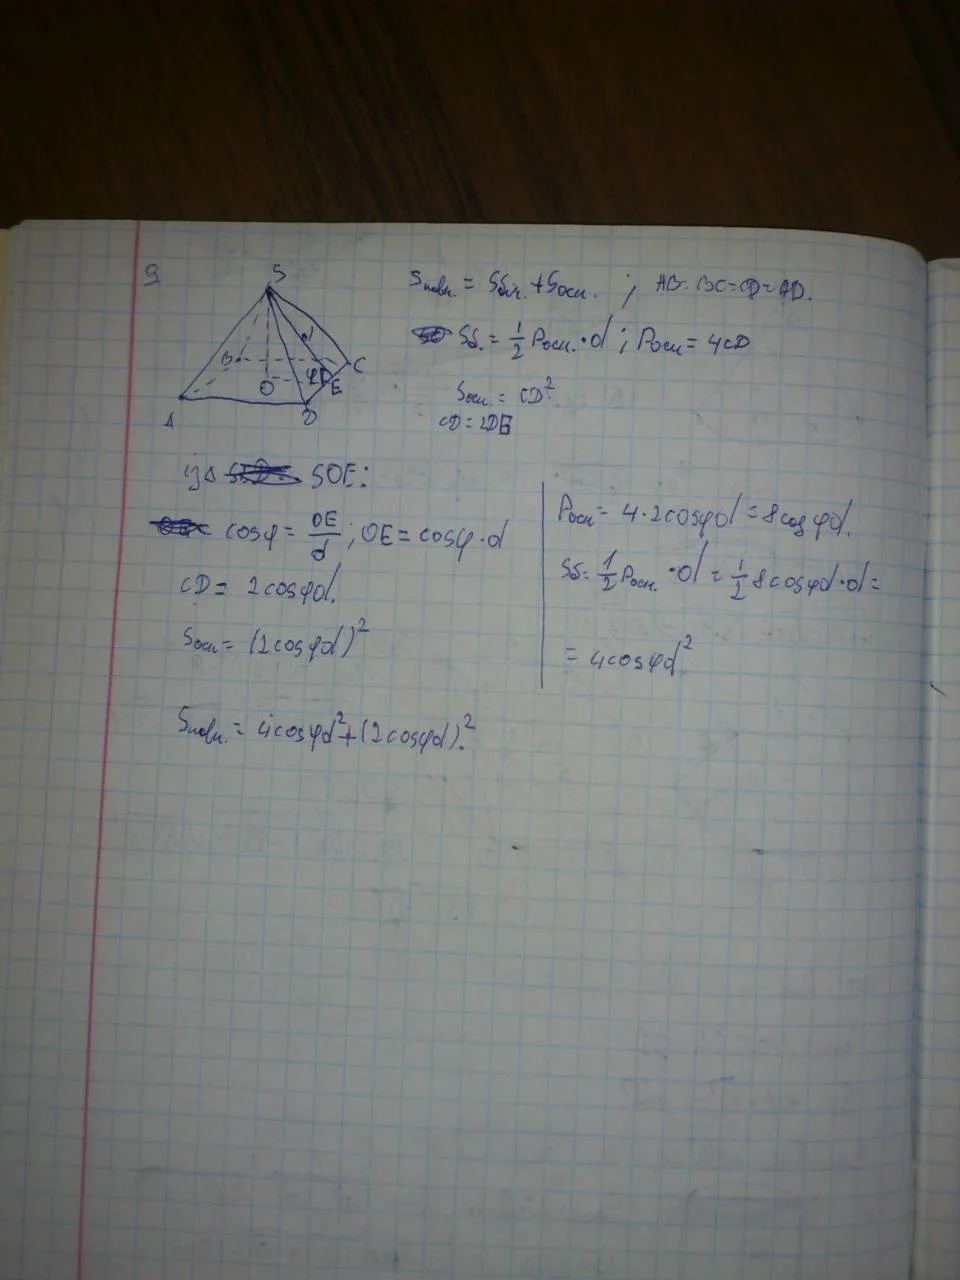 9
S
B
C
O
φ
E
A
D
d
Sповн. = Sбіч. + Sосн. ; AB = BC = CD = AD.
Sб. = 1/2 Pосн. · d ; Pосн = 4CD
Sосн. = CD²
CD = 2OE
із Δ SOE:
cosφ = OE/d ; OE = cosφ · d
CD = 2cosφd.
Sосн = (2cosφd)²
Pосн = 4 · 2cosφd = 8cosφd.
Sб = 1/2 Pосн. · d = 1/2 8cosφd · d =
= 4cosφd²
Sповн. = 4cosφd² + (2cosφd)².